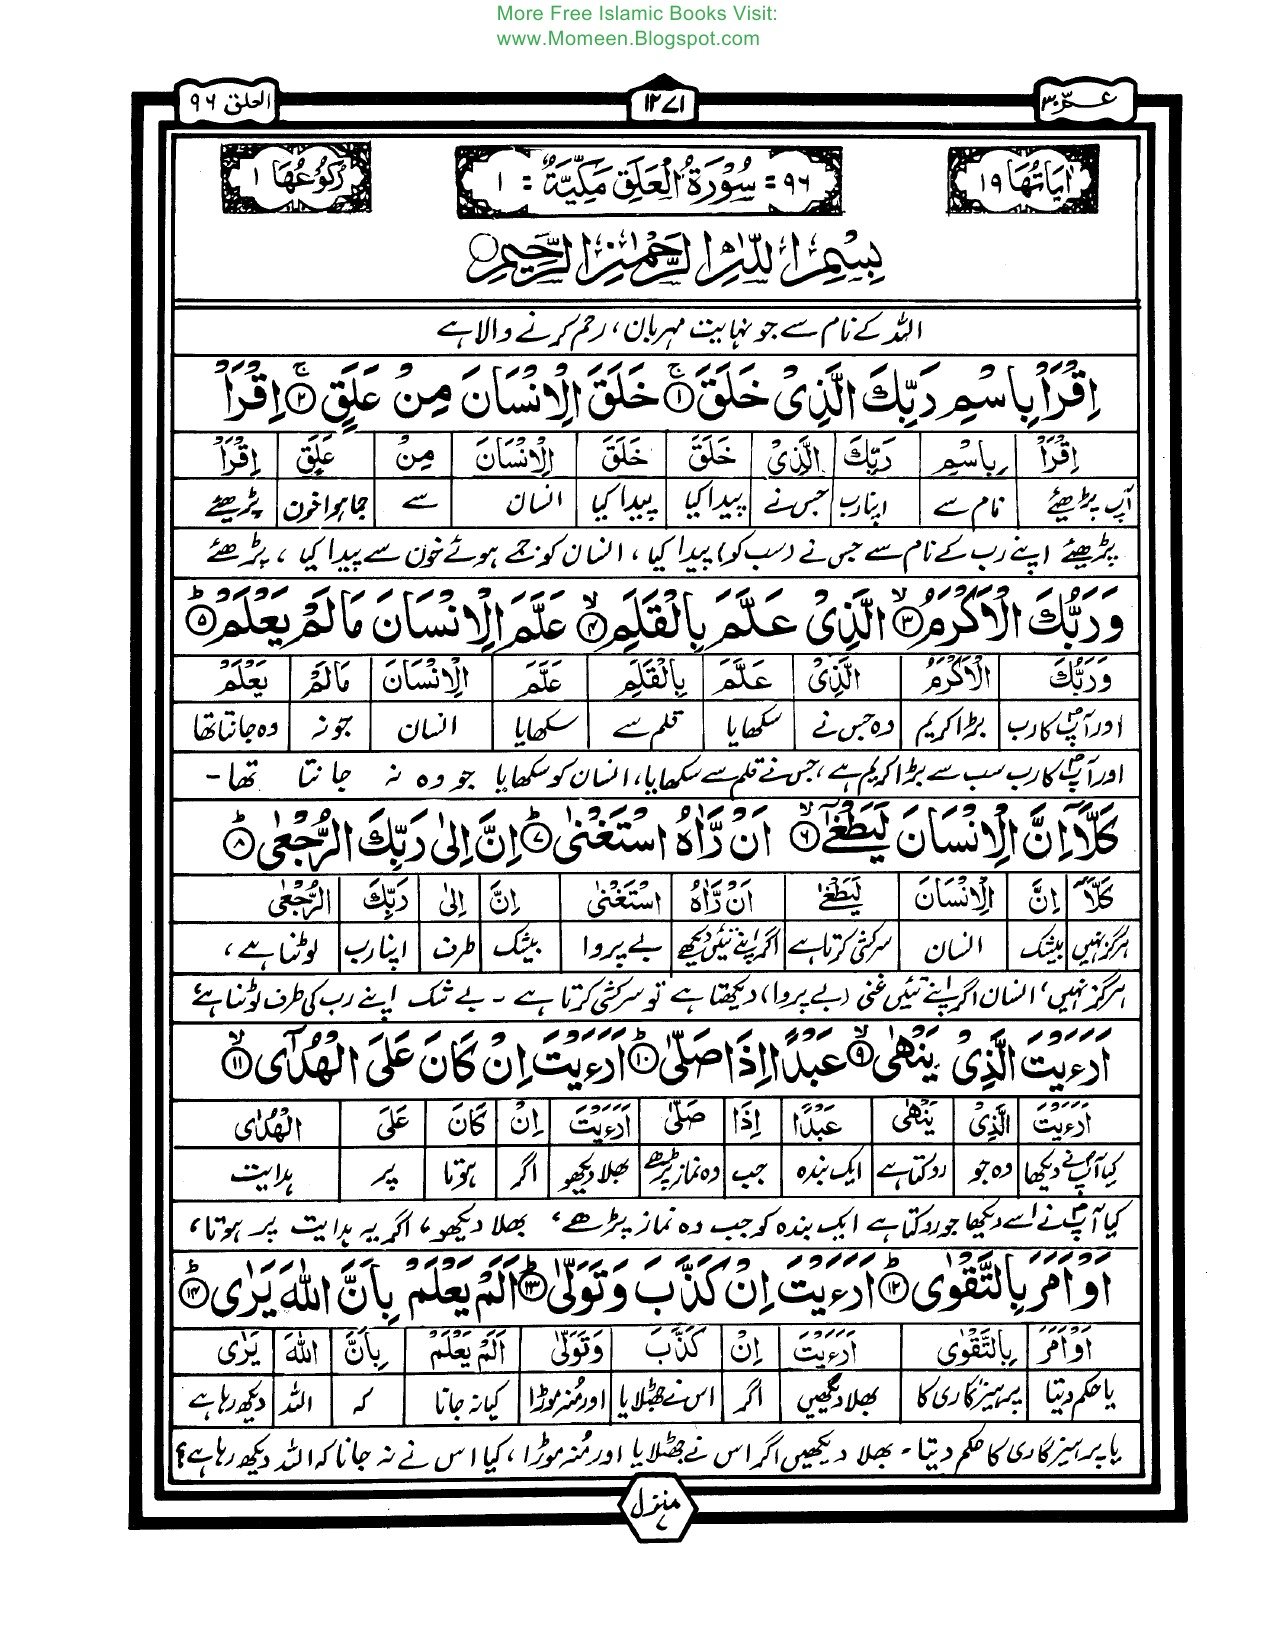 More Free Islamic Books Visit:
www.Momeen.Blogspot.com
عمّ ۳۰
۱۲۷۱
العلق ۹۶
اٰیَاتُهَا ۱۹
۹۶ = سُوْرَةُ الْعَلَقِ مَكِّيَّةٌ = ۱
رُكُوْعُهَا ۱
بِسْمِ اللهِ الرَّحْمٰنِ الرَّحِيْمِ
اللہ کے نام سے جو نہایت مہربان ، رحم کرنے والا ہے
اِقْرَاْ بِاسْمِ رَبِّكَ الَّذِیْ خَلَقَ ۱ خَلَقَ الْاِنْسَانَ مِنْ عَلَقٍ ۲ اِقْرَاْ
اِقْرَاْ بِاسْمِ رَبِّكَ الَّذِیْ خَلَقَ خَلَقَ الْاِنْسَانَ مِنْ عَلَقٍ اِقْرَاْ
آپ پڑھیئے نام سے اپنا رب جس نے پیدا کیا پیدا کیا انسان سے جما ہوا خون پڑھیئے
پڑھیئے اپنے رب کے نام سے جس نے (سب کو) پیدا کیا ، انسان کو جمے ہوئے خون سے پیدا کیا ، پڑھیئے
وَرَبُّكَ الْاَكْرَمُ ۳ الَّذِیْ عَلَّمَ بِالْقَلَمِ ۴ عَلَّمَ الْاِنْسَانَ مَا لَمْ یَعْلَمْ ۵
وَرَبُّكَ الْاَكْرَمُ الَّذِیْ عَلَّمَ بِالْقَلَمِ عَلَّمَ الْاِنْسَانَ مَا لَمْ یَعْلَمْ
اور آپؐ کا رب بڑا کریم وہ جس نے سکھایا قلم سے سکھایا انسان جو نہ وہ جانتا تھا
اور آپؐ کا رب سب سے بڑا کریم ہے ، جس نے قلم سے سکھایا ، انسان کو سکھایا جو وہ نہ جانتا تھا -
كَلَّاۤ اِنَّ الْاِنْسَانَ لَیَطْغٰۤی ۶ اَنْ رَّاٰهُ اسْتَغْنٰی ۷ اِنَّ اِلٰی رَبِّكَ الرُّجْعٰی ۸
كَلَّاۤ اِنَّ الْاِنْسَانَ لَیَطْغٰۤی اَنْ رَّاٰهُ اسْتَغْنٰی اِنَّ اِلٰی رَبِّكَ الرُّجْعٰی
ہرگز نہیں بیشک انسان سرکشی کرتا ہے اگر اپنے تئیں دیکھے بے پروا بیشک طرف اپنا رب لوٹنا ہے ،
ہرگز نہیں ، انسان اگر اپنے تئیں غنی (بے پروا) دیکھتا ہے تو سرکشی کرتا ہے - بے شک اپنے رب کی طرف لوٹنا ہے
اَرَءَیْتَ الَّذِیْ یَنْهٰی ۹ عَبْدًا اِذَا صَلّٰی ۱۰ اَرَءَیْتَ اِنْ كَانَ عَلَی الْهُدٰۤی ۱۱
اَرَءَیْتَ الَّذِیْ یَنْهٰی عَبْدًا اِذَا صَلّٰی اَرَءَیْتَ اِنْ كَانَ عَلَی الْهُدٰۤی
کیا آپؐ نے دیکھا وہ جو روکتا ہے ایک بندہ جب وہ نماز پڑھے بھلا دیکھو اگر ہوتا پر ہدایت
کیا آپؐ نے اسے دیکھا جو روکتا ہے ایک بندہ کو جب وہ نماز پڑھے ، بھلا دیکھو ، اگر یہ ہدایت پر ہوتا ،
اَوْ اَمَرَ بِالتَّقْوٰی ۱۲ اَرَءَیْتَ اِنْ كَذَّبَ وَتَوَلّٰی ۱۳ اَلَمْ یَعْلَمْ بِاَنَّ اللهَ یَرٰی ۱۴
اَوْ اَمَرَ بِالتَّقْوٰی اَرَءَیْتَ اِنْ كَذَّبَ وَتَوَلّٰی اَلَمْ یَعْلَمْ بِاَنَّ اللهَ یَرٰی
یا حکم دیتا پرہیزگاری کا بھلا دیکھیں اگر اس نے جھٹلایا اور منہ موڑا کیا نہ جانا کہ اللہ دیکھ رہا ہے
یا پرہیزگاری کا حکم دیتا - بھلا دیکھیں اگر اس نے جھٹلایا اور منہ موڑا ، کیا اس نے نہ جانا کہ اللہ دیکھ رہا ہے ؟
منزل ۷